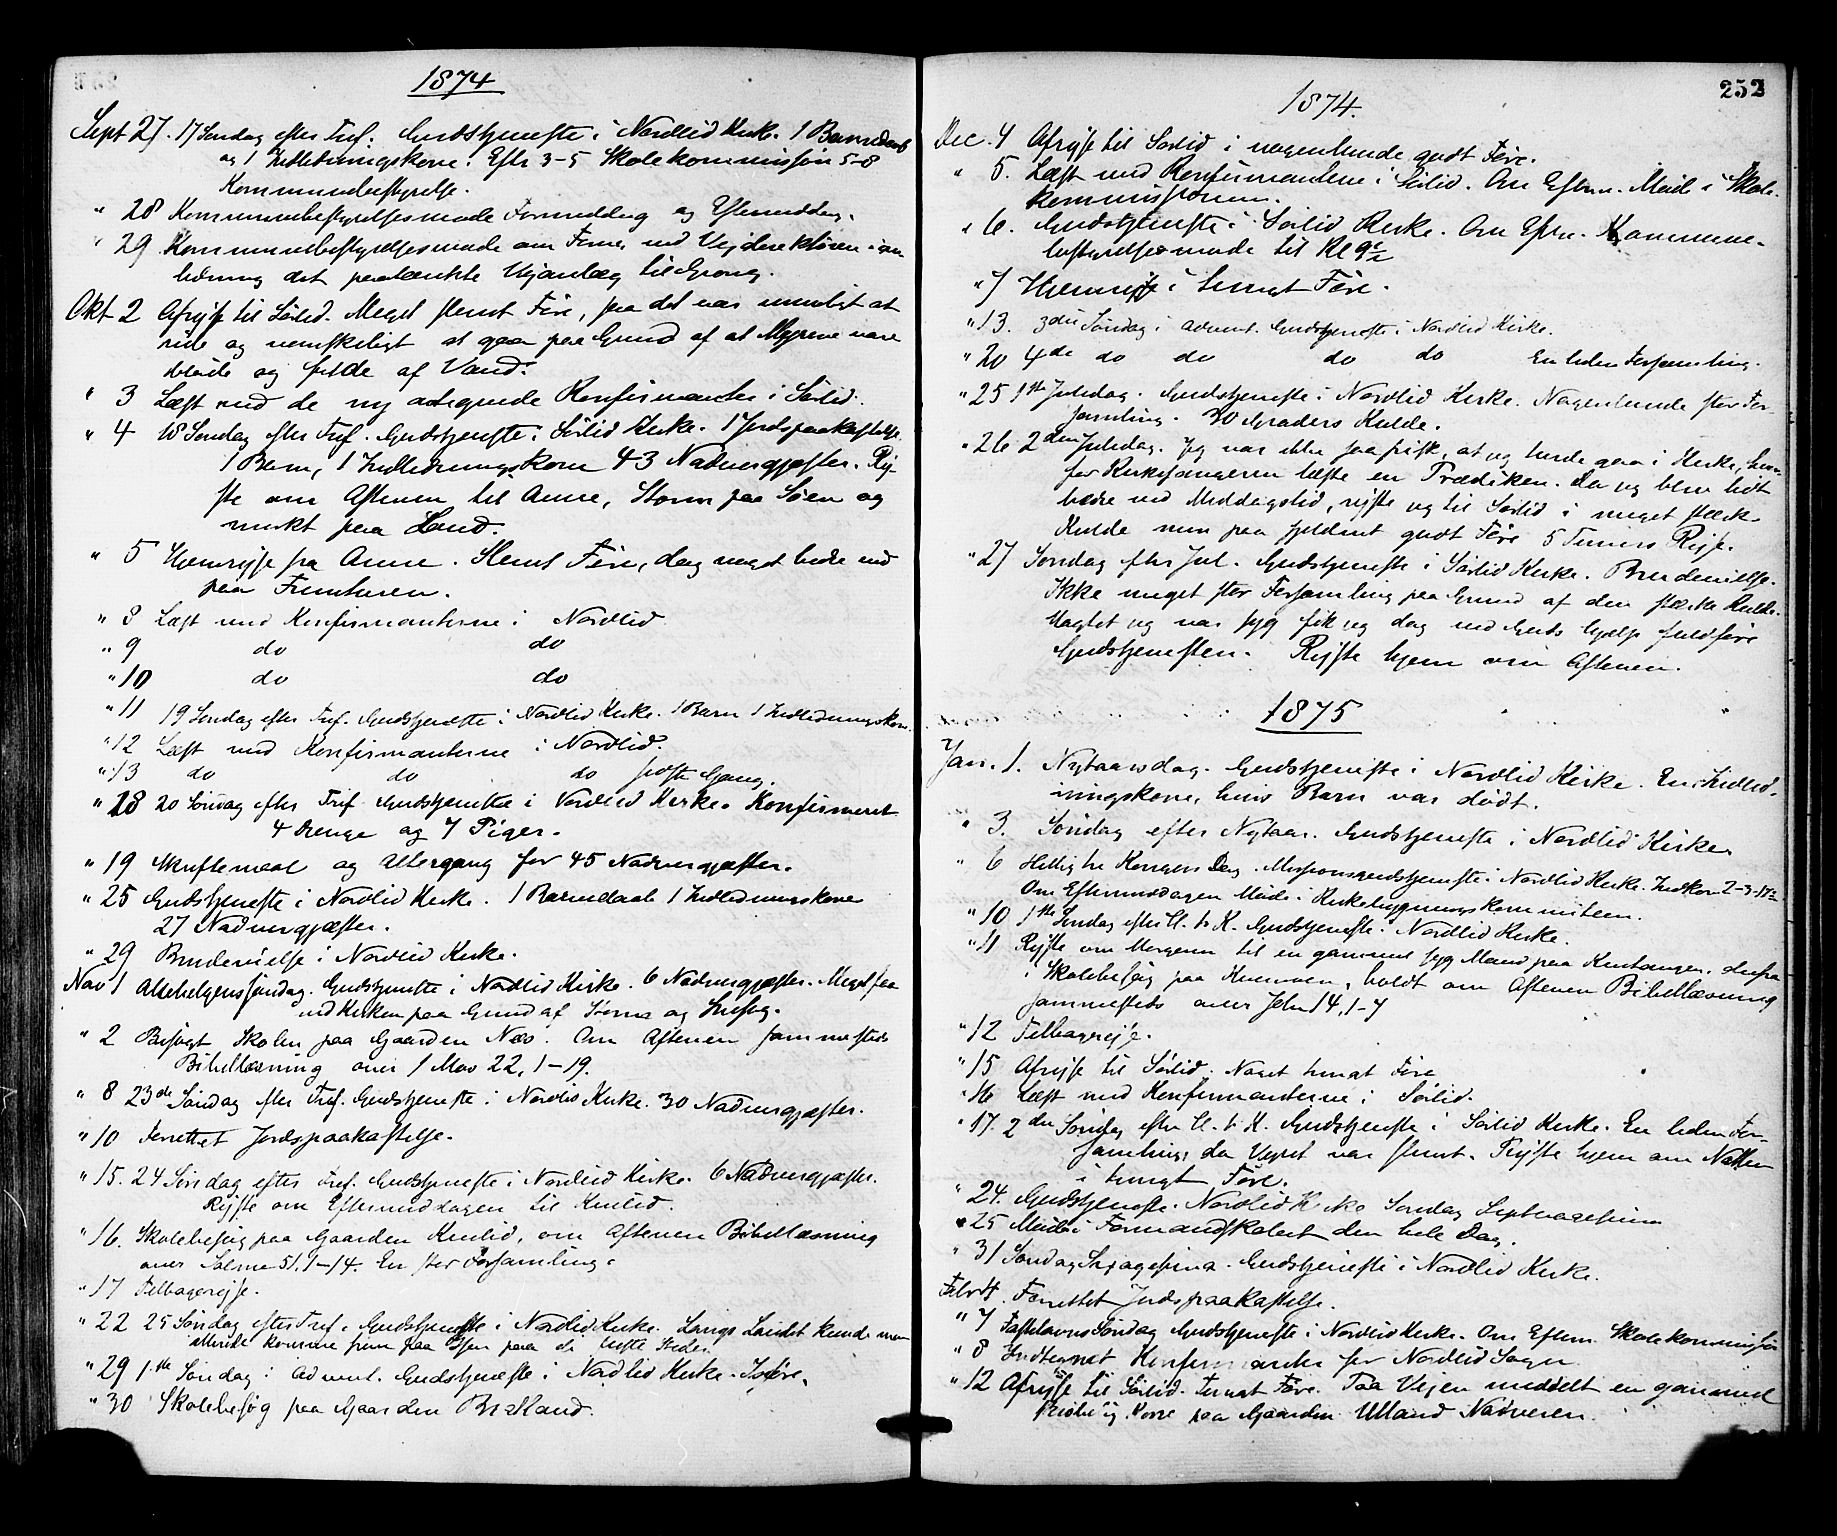 1874
Sept 27. 17 Søndag efter Tref. Gudstjeneste i Nordlid Kirke. 1 Barnedaab
og 1 Indledningskone. Efter 3-5 Skolekommission 5-8
Kommunebestyrelse.
" 28 Kommunebestyrelsesmøde Formiddag og Eftermiddag.
" 29 Kommunebestyrelsesmøde om Form. med Vejdirektøren i an
ledning det paatænkte Vejanlæg til Grong.
Okt 2 Afrejse til Sørlid. Meget slemt Føre, saa det var umuligt at
ride og vanskeligt at gaa paa Grund af at Myrene vare
bløde og fulde af Vand.
" 3 Læst med de ny antegnede Konfirmanter i Sørlid.
" 4 18 Søndag efter Tref. Gudstjeneste i Sørlid Kirke. 1 Jordspaakastelse
1 Barn, 1 Indledningskone 43 Nadvergjæster. Rej-
ste om Aftenen til Anne, Storm paa Søen og
mørkt paa Land.
" 5 Hjemrejse fra Anne. Slemt Føre, dog noget bedre end
paa Fremturen.
" 8 Læst med Konfirmanterne i Nordlid
" 9 do do
" 10 do do
" 11 19 Søndag efter Tref. Gudstjeneste i Nordlid Kirke. 1 Barn 1 Indledningskone.
" 12 Læst med Konfirmanterne i Nordlid.
" 13 do do do sidste Gang.
" 18 20 Søndag efter Tref. Gudstjeneste i Nordlid Kirke. Konfirmeret
4 Drenge og 7 Piger.
" 19 Skriftemaal og Altergang for 45 Nadvergjæster.
" 25 Gudstjeneste i Nordlid Kirke. 1 Barnedaab 1 Indledningskone
27 Nadvergjæster.
" 29 Brudevielse i Nordlid Kirke.
Nov 1 Allehelgenssøndag. Gudstjeneste i Nordlid Kirke. 6 Nadvergjæster. Meget faa
ved Kirken paa Grund af Storm og Snefog.
" 2 Besøgt Skolen paa Gaarden Næs. Om Aftenen sammesteds
Bibellæsning over 1 Mos 22, 1-19.
" 8 23de Søndag efter Tref. Gudstjeneste i Nordlid Kirke. 30 Nadvergjæster.
" 10 Forrettet Jordspaakastelse.
" 15. 24 Søndag efter Tref. Gudstjeneste i Nordlid Kirke. 6 Nadvergjæster.
Rejste om Eftermiddagen til Kvelid.
" 16. Skolebesøg paa Gaarden Kvelid, om Aftenen Bibellæsning
over Salme 51, 1-14. En stor Forsamling.
" 17 Tilbagerejse.
" 22 25 Søndag efter Tref. Gudstjeneste i Nordlid Kirke. Langs Landet kunde man
allerede komme frem paa Isen paa de fleste Steder.
" 29 1ste Søndag i Advent. Gudstjeneste i Nordlid Kirke. Isføre.
" 30 Skolebesøg paa Gaarden Birkland.
252
1874.
Dec. 4 Afrejse til Sørlid i nogenlunde godt Føre.
" 5. Læst med Konfirmanterne i Sørlid. Om Efterm. Møde i Skole-
kommissionen.
" 6. Gudstjeneste i Sørlid Kirke. Om Efterm. Kommune-
bestyrelsesmøde til Kl 9½
" 7 Hjemrejse i tungt Føre.
" 13. 3die Søndag i Advent. Gudstjeneste i Nordlid Kirke.
" 20 4de do do do do En liden Forsamling.
" 25 1ste Juledag. Gudstjeneste i Nordlid Kirke. Nogenlunde stor For-
samling. 20 Graders Kulde.
" 26 2den Juledag. Jeg var ikke saa frisk, at jeg turde gaa i Kirke, hvor-
for Kirkesangeren læste en Prædiken. Da jeg blev lidt
bedre ved Middagstid, rejste jeg til Sørlid i meget stærk
Kulde men paa sjeldent godt Føre 5 Timers Rejse.
" 27 Søndag efter Jul. Gudstjeneste i Sørlid Kirke. Brudevielse.
Ikke meget stor Forsamling paa Grund af den stærke Kulde.
Uagtet jeg var syg fik jeg dog med Guds Hjælp fuldføre
Gudstjenesten. Rejste hjem om Aftenen.
1875
Jan. 1. Nytaarsdag. Gudstjeneste i Nordlid Kirke. En Indled-
ningskone, hvis Barn var dødt.
" 3. Søndag efter Nytaar. Gudstjeneste i Nordlid Kirke.
" 6 Hellig tre Kongers Dag. Missionsgudstjeneste i Nordlid Kirke. Indkom 2-3-17½
Om Eftermiddagen Møde i Kirkebygningskommiteen.
" 10 1ste Søndag efter H. tr K. Gudstjeneste i Nordlid Kirke.
" 11 Rejste om Morgenen til en gammel syg Mand paa Kvetangen. Derfra
i Skolebesøg paa, holdt om Aftenen Bibellæsning
sammesteds over Joh 14, 1-7
" 12 Tilbagerejse.
" 15 Afrejse til Sørlid. Noget tungt Føre
" 16 Læst med Konfirmanterne i Sørlid.
" 17. 2den Søndag efter H. tr K. Gudstjeneste i Sørlid Kirke. En liden For-
samling, da Vejret var slemt. Rejste hjem om Natten
i tungt Føre.
" 24. Gudstjeneste i Nordlid Kirke Søndag Septuagesima
" 25 Møde i Formandskabet den hele Dag.
" 31 Søndag Sexagesima. Gudstjeneste i Nordlid Kirke.
Febr 4. Forrettet Jordspaakastelse.
" 7 Fastelavns Søndag Gudstjeneste i Nordlid Kirke. Om Efterm. Skolekommission
" 8 Indtegnet Konfirmanter for Nordlid Sogn
" 12 Afrejse til Sørlid. Tungt Føre. Paa Vejen meddelt en gammel
Kone paa Gaarden Ulland Nadveren.